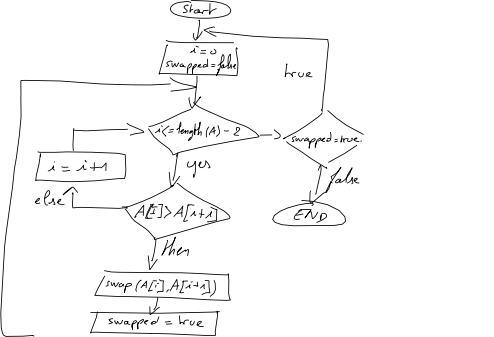 Start
i=0
swapped=false
true
i<=length(A)-2
swapped=true
i = i+1
yes
false
else
A[i]>A[i+1]
END
then
swap(A[i],A[i+1])
swapped = true